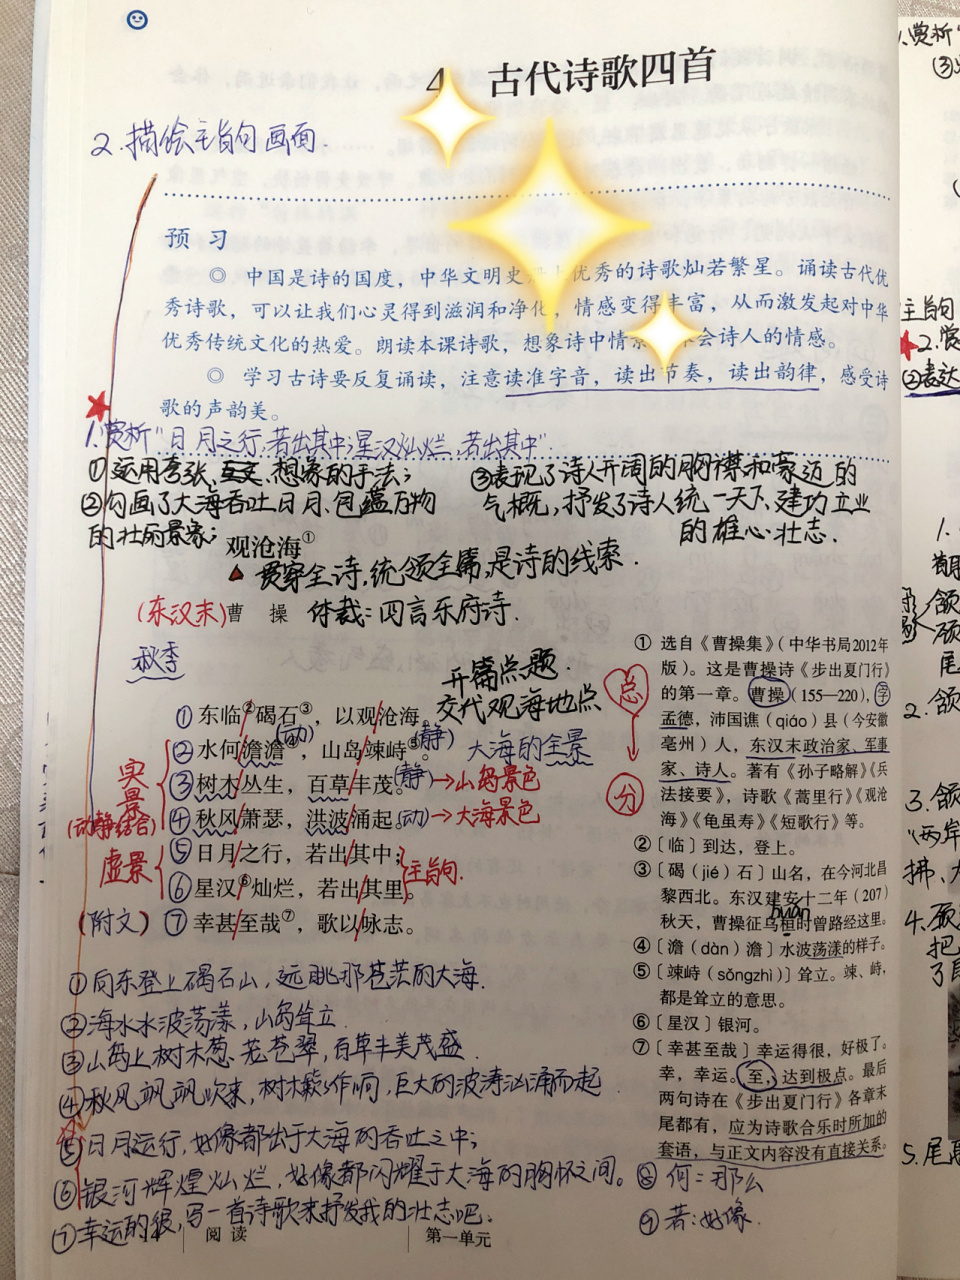 4 古代诗歌四首
2.描绘主旨句画面.
预习
◎ 中国是诗的国度，中华文明史 优秀的诗歌灿若繁星。诵读古代优
秀诗歌，可以让我们心灵得到滋润和净化，情感变得丰富，从而激发起对中华
优秀传统文化的热爱。朗读本课诗歌，想象诗中情 会诗人的情感。
◎ 学习古诗要反复诵读，注意读准字音，读出节奏，读出韵律，感受诗
歌的声韵美。
1.赏析"日月之行,若出其中;星汉灿烂,若出其中".
①运用夸张、互文、想象的手法;
②勾画了大海吞吐日月、包蕴万物
的壮丽景象;
③表现了诗人开阔的胸襟和豪迈的
气概,抒发了诗人统一天下、建功立业
的雄心壮志.
观沧海①
贯穿全诗,统领全篇,是诗的线索.
(东汉末)曹 操 体裁:四言乐府诗.
秋季
开篇点题.
交代观海地点
①东临②碣石③，以观沧海。
②水何澹澹④(动)，山岛竦峙⑤。(静) 大海的全景
③树木丛生，百草丰茂。(静)→山岛景色
④秋风萧瑟，洪波涌起。(动)→大海景色
⑤日月之行，若出其中；
⑥星汉⑥灿烂，若出其里。
主旨句.
(附文)⑦幸甚至哉⑦，歌以咏志。
实景
(动静结合)
虚景
总
分
①向东登上碣石山，远眺那苍茫的大海.
②海水水波荡漾,山岛耸立.
③山岛上树木葱茏苍翠,百草丰美茂盛.
④秋风飒飒吹来,树木簌簌作响,巨大的波涛汹涌而起
⑤日月运行,好像都出于大海的吞吐之中;
⑥银河辉煌灿烂,好像都闪耀于大海的胸怀之间。
⑦幸运的很,写一首诗歌来抒发我的壮志吧.
① 选自《曹操集》（中华书局2012年
版）。这是曹操诗《步出夏门行》
的第一章。曹操（155—220），字
孟德，沛国谯（qiáo）县（今安徽
亳州）人，东汉末政治家、军事
家、诗人。著有《孙子略解》《兵
法接要》，诗歌《蒿里行》《观沧
海》《龟虽寿》《短歌行》等。
②〔临〕到达，登上。
③〔碣（jié）石〕山名，在今河北昌
黎西北。东汉建安十二年（207）
huán
秋天，曹操征乌桓时曾路经这里。
④〔澹（dàn）澹〕水波荡漾的样子。
⑤〔竦峙（sǒngzhì）〕耸立。竦、峙，
都是耸立的意思。
⑥〔星汉〕银河。
⑦〔幸甚至哉〕幸运得很，好极了。
幸，幸运。至，达到极点。最后
两句诗在《步出夏门行》各章末
尾都有，应为诗歌合乐时所加的
套语，与正文内容没有直接关系。
⑧ 何:那么
⑨ 若:好像.
阅读 第一单元
1.赏析"
主旨句
2.赏
②表达
1.
2.颔
3.颔
"两岸
4.颈
把
5.尾